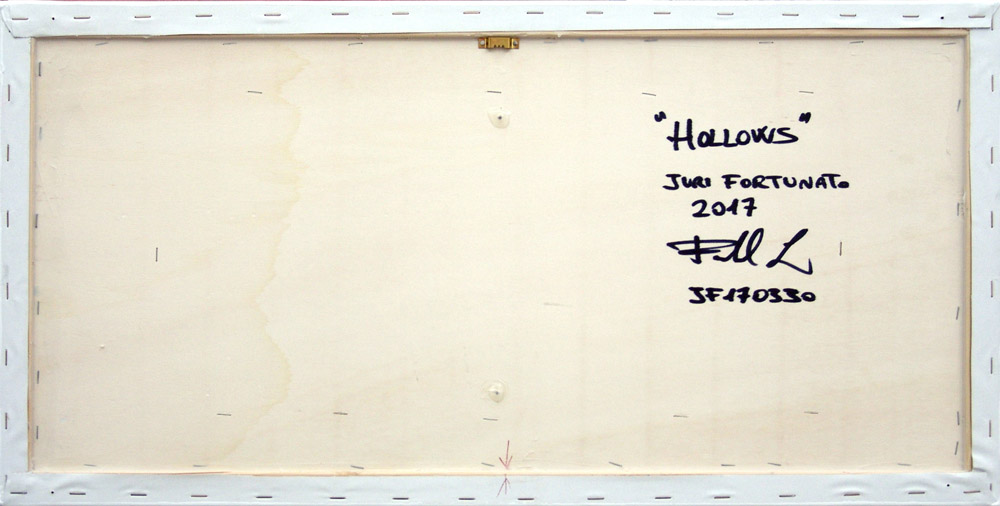 "HOLLOWS"
JURI FORTUNATO
2017
JF170330